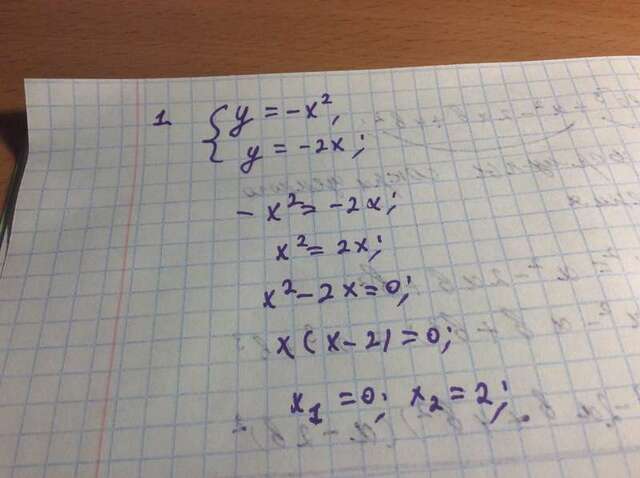 1 { y = -x²,
y = -2x;
-x² = -2x;
x² = 2x;
x² - 2x = 0;
x(x - 2) = 0;
x₁ = 0; x₂ = 2;